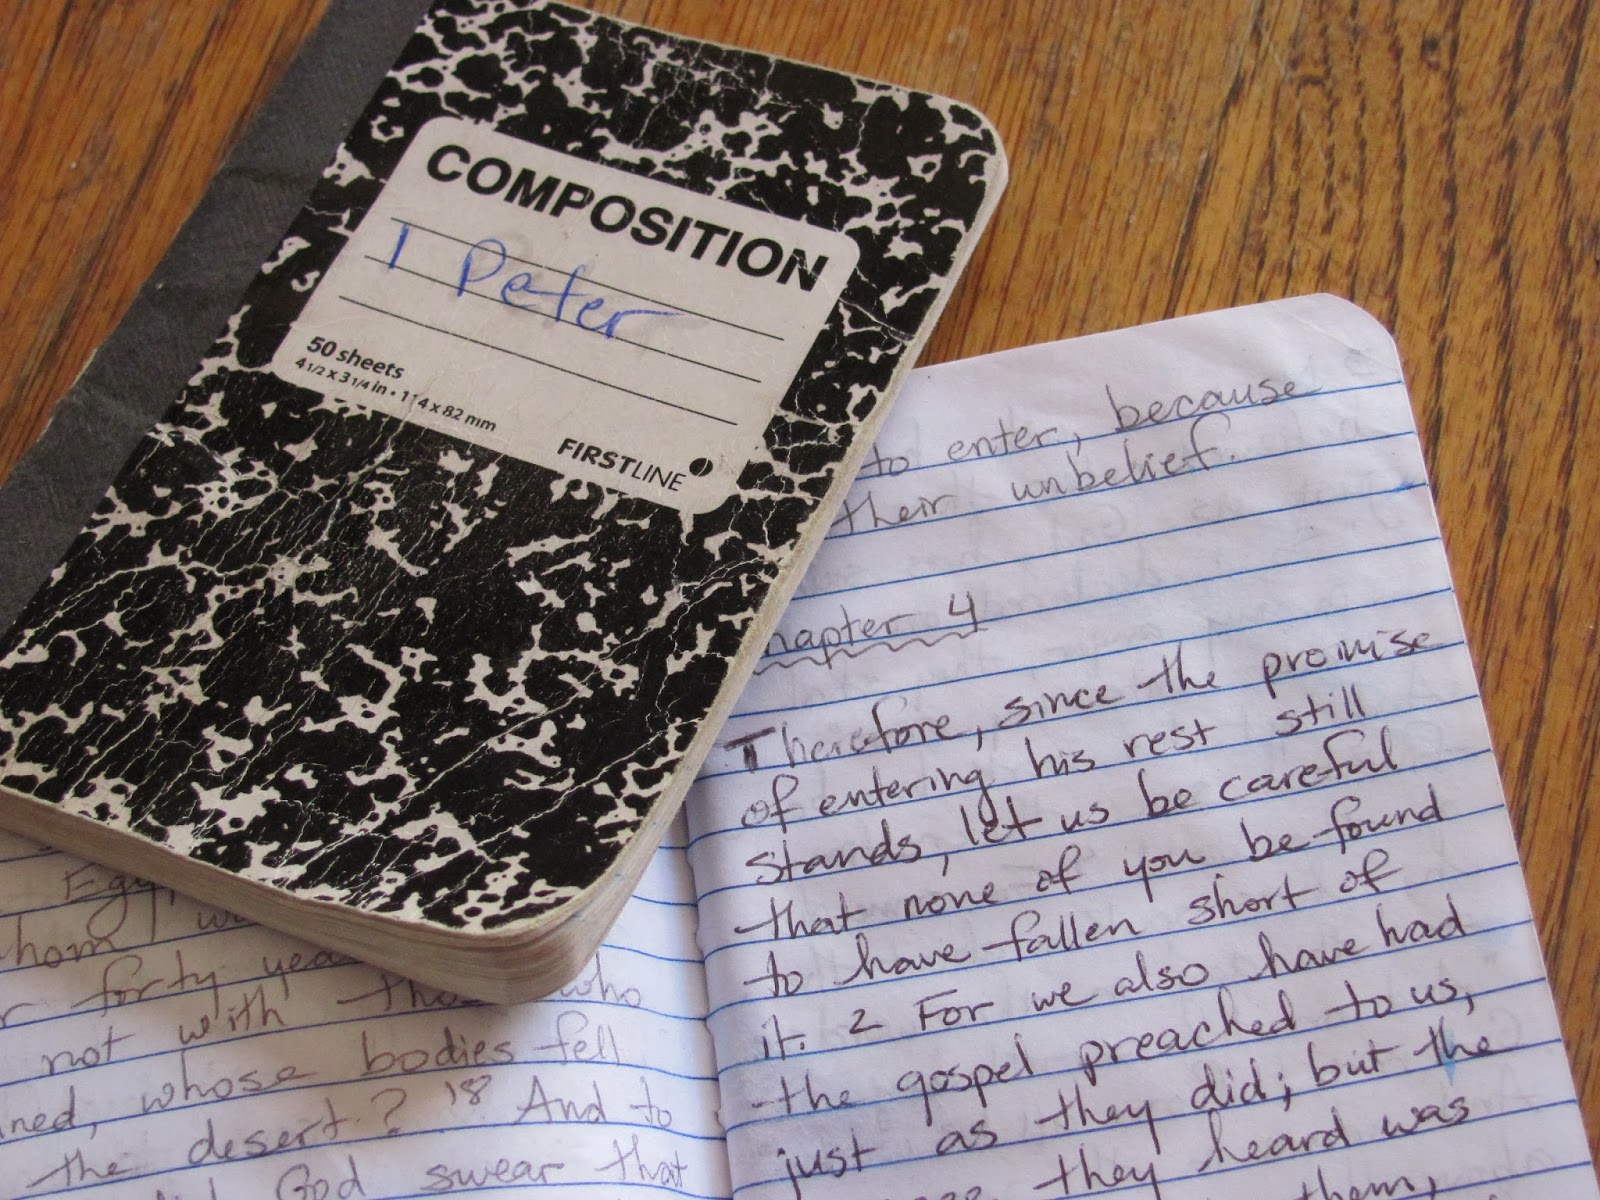 COMPOSITION
1 Peter
50 sheets
4 1/2 x 3 1/4 in • 114 x 82 mm
FIRSTLINE
to enter, because
their unbelief.
hapter 4
Therefore, since the promise
of entering his rest still
stands, let us be careful
that none of you be found
to have fallen short of
it. 2 For we also have had
the gospel preached to us,
just as they did; but the
they heard was
them,
Egy
hom w
r forty yea
not with tho who
ned, whose bodies fell
the desert? 18 And to
God swear that